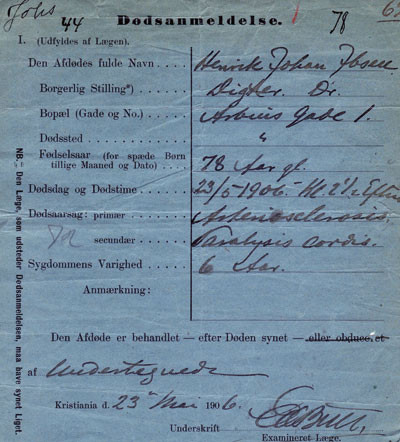 Johs 44
Dødsanmeldelse.
78
I. (Udfyldes af Lægen).
Den Afdødes fulde Navn Henrik Johan Ibsen
Borgerlig Stilling*) Digter. Dr.
Bopæl (Gade og No.) Arbins Gade 1.
Dødssted "
Fødselsaar (for spæde Børn tillige Maaned og Dato) 78 Aar gl.
Dødsdag og Dødstime 23/5 1906. Kl 2½ Eftm
Dødsaarsag: primær Arteriosclerosis.
secundær Paralysis cordis.
Sygdommens Varighed 6 Aar.
Anmærkning:
Den Afdøde er behandlet — efter Døden synet — eller obduceret
af Undertegnede
Kristiania d. 23 Mai 1906.
Underskrift
Examineret Læge.
NB. Den Læge, som udsteder Dødsanmeldelsen, maa have synet Liget.